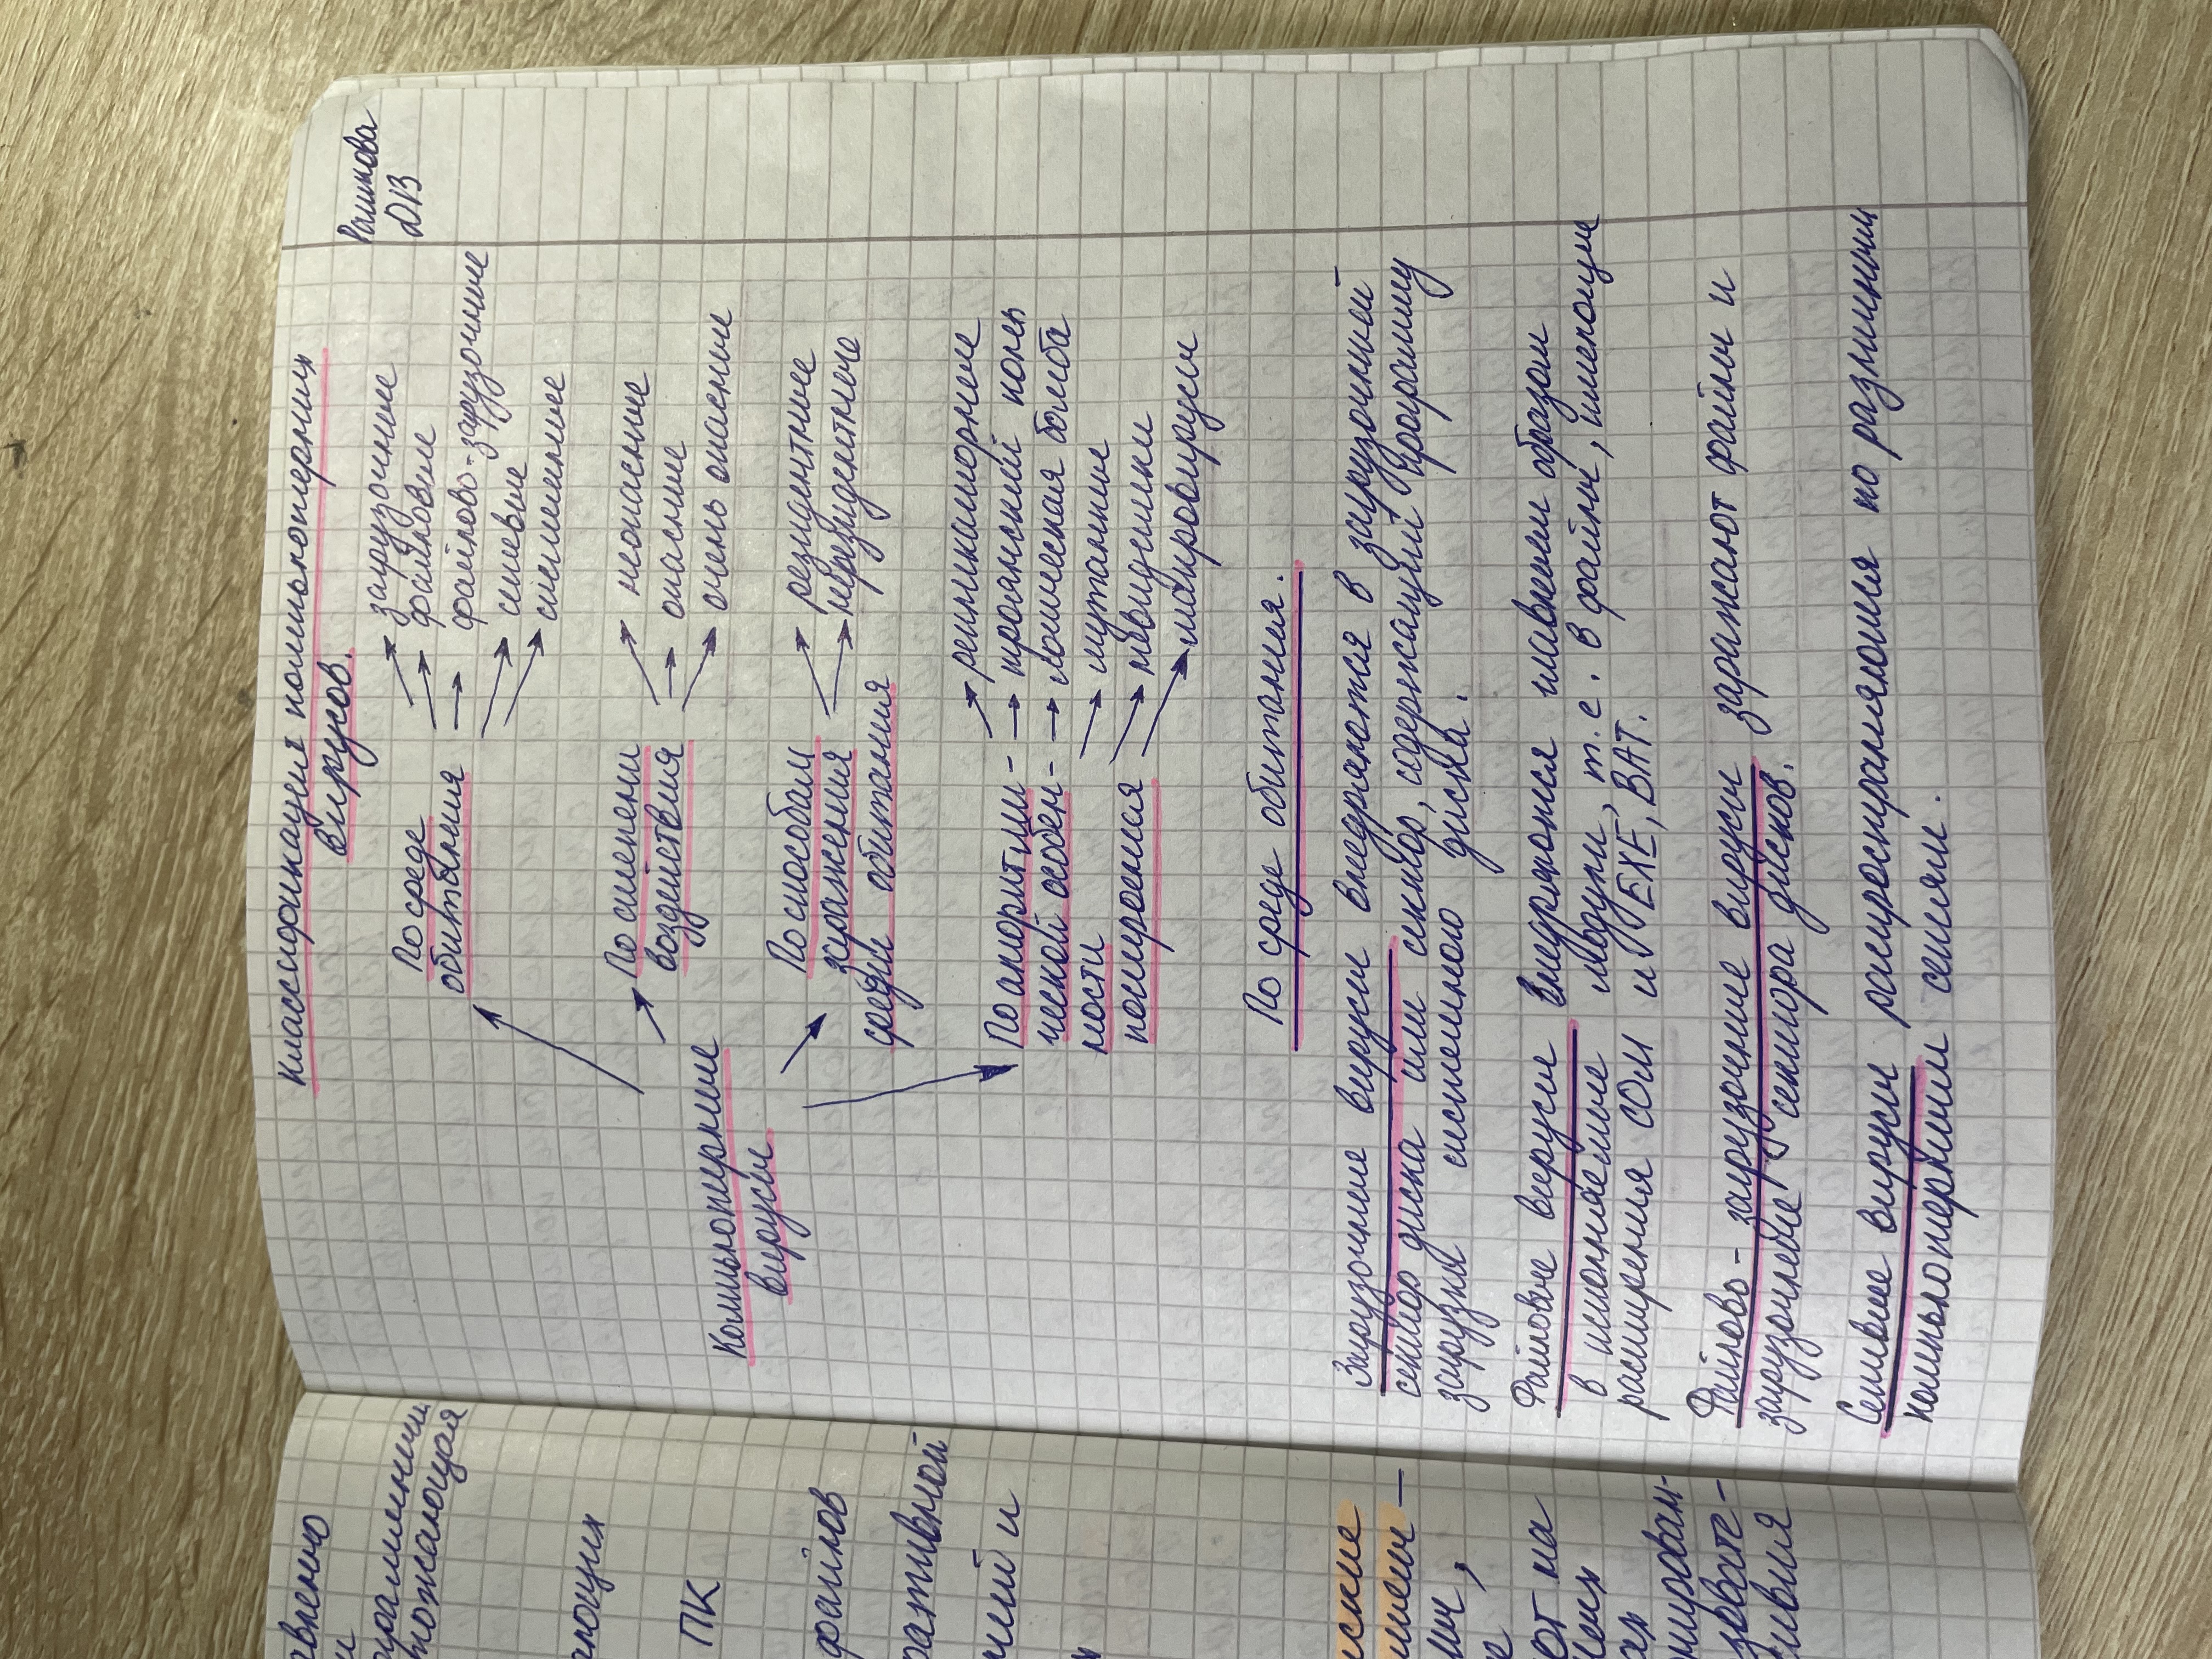 Рашкова
ДІЗ
Классификация компьютерных
вирусов.
По среде
обитания
загрузочные
файловые
файлово-загрузочные
сетевые
системные
По степени
воздействия
неопасные
опасные
очень опасные
Компьютерные
вирусы
По способам
заражения
среды обитания
резидентные
нерезидентные
По алгоритми-
ческой особен-
ности
построения
репликаторные
троянский конь
логическая бомба
мутанты
невидимки
макровирусы
По среде обитания.
Загрузочные вирусы внедряются в загрузочный
сектор диска или сектор, содержащий программу
загрузки системного диска.
Файловые вирусы внедряются главным образом
в исполняемые модули, т.е. в файлы, имеющие
расширения COM и EXE, BAT.
Файлово-загрузочные вирусы заражают файлы и
загрузочные сектора дисков.
Сетевые вирусы распространяются по различным
компьютерным сетям.
ПК
файлов